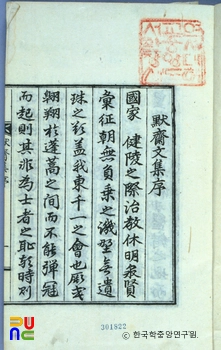 默齋文集序
國家 健陵之際治教休明衆賢
彙征朝無負乘之譏野遺
珠之歎盖我東千一之會也
翱翔於蓬蒿之間而不能彈冠
而起則其非爲士者之恥歟時則
301822
© 한국학중앙연구원